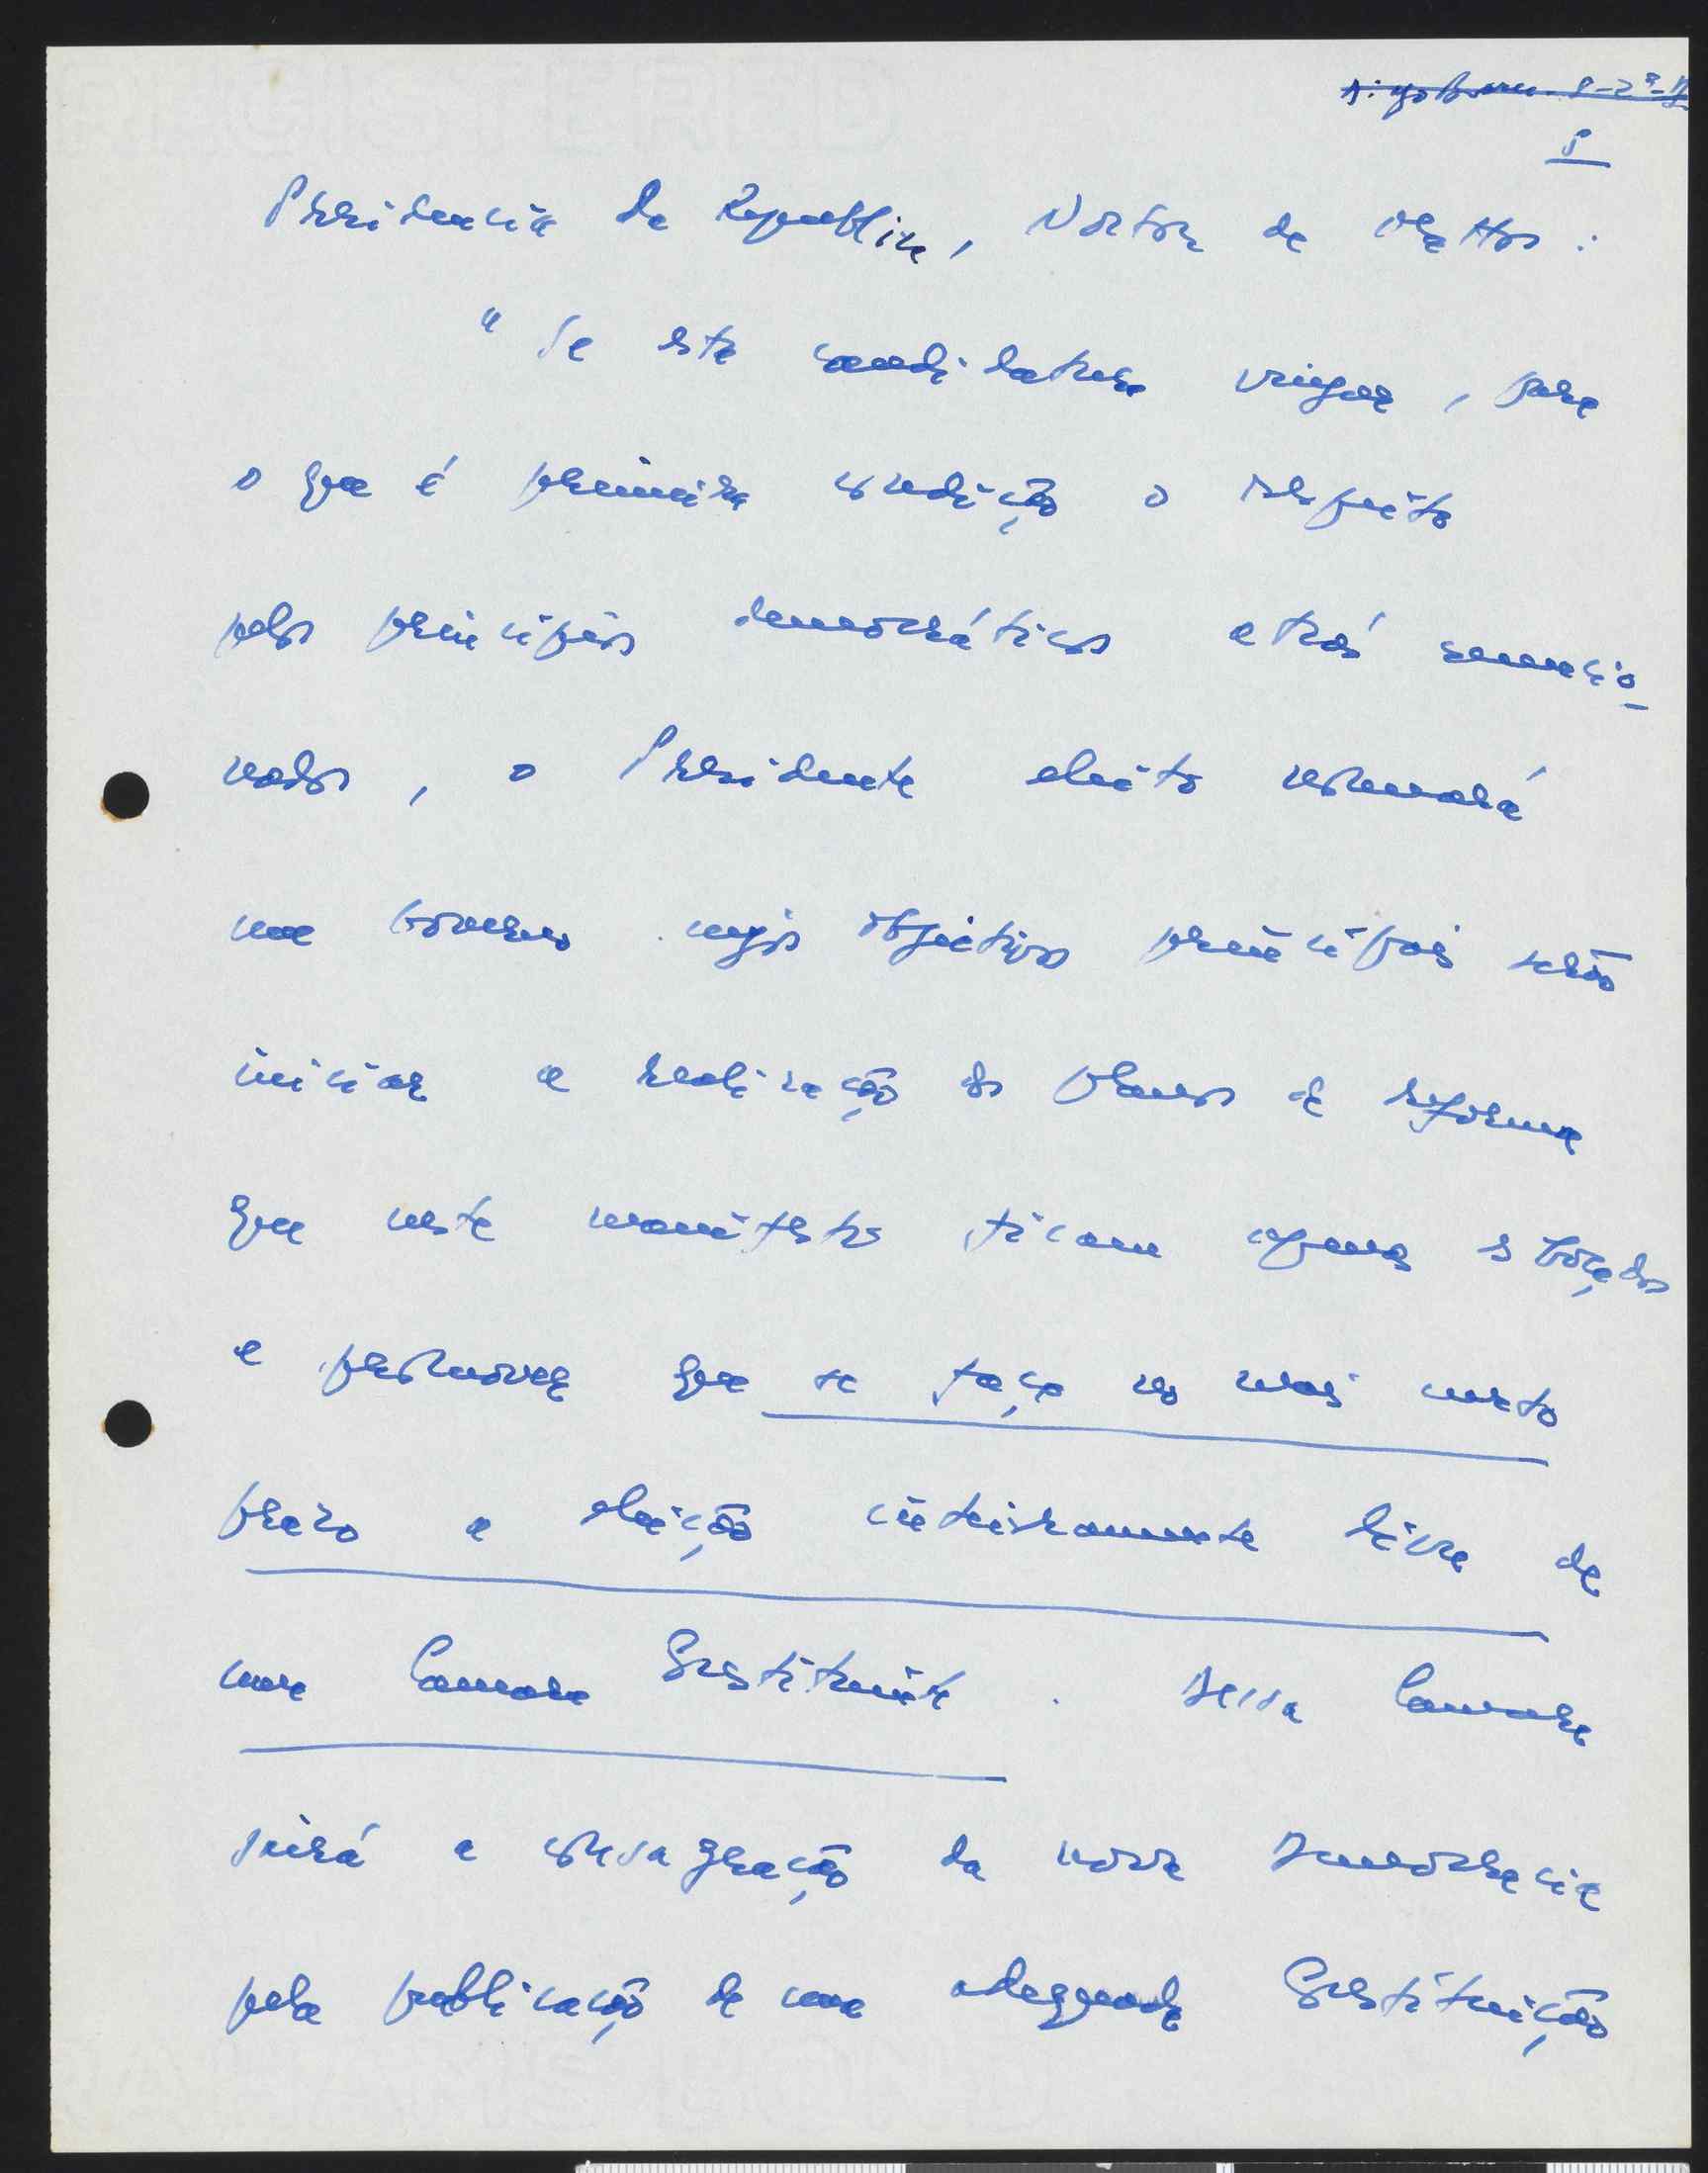 5
Presidencia da Republica, Norton de Mattos :
" Se esta candidatura vingar, para
o que é primeira condição o respeito
pelos principios democráticos atrás mencio-
nados, o Presidente eleito nomeará
um Governo cujos objectivos principais serão
iniciar a realização dos planos de reforma
que neste manifesto ficam apenas esboçados
e promover que se faça no mais curto
prazo a eleição inteiramente livre de
uma Camara Constituinte. Dessa Camara
sairá a consagração da nova Democracia
pela publicação de uma adequada Constituição